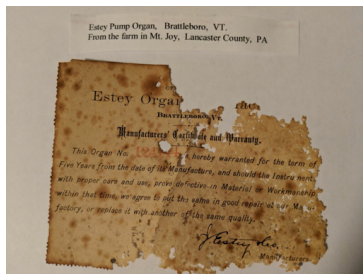 Estey Pump Organ, Brattleboro, VT.
From the farm in Mt. Joy, Lancaster County, PA
Estey Organ
BRATTLEBORO, VT.
Manufacturers' Certificate and Warranty.
This Organ No. hereby warranted for the term of
Five Years from the date of its Manufacture, and should the Instrument,
with proper care and use, prove defective in Material or Workmanship
within that time, we agree to put the same in good repair at our Manu-
factory, or replace it with another of the same quality.
Manufacturers